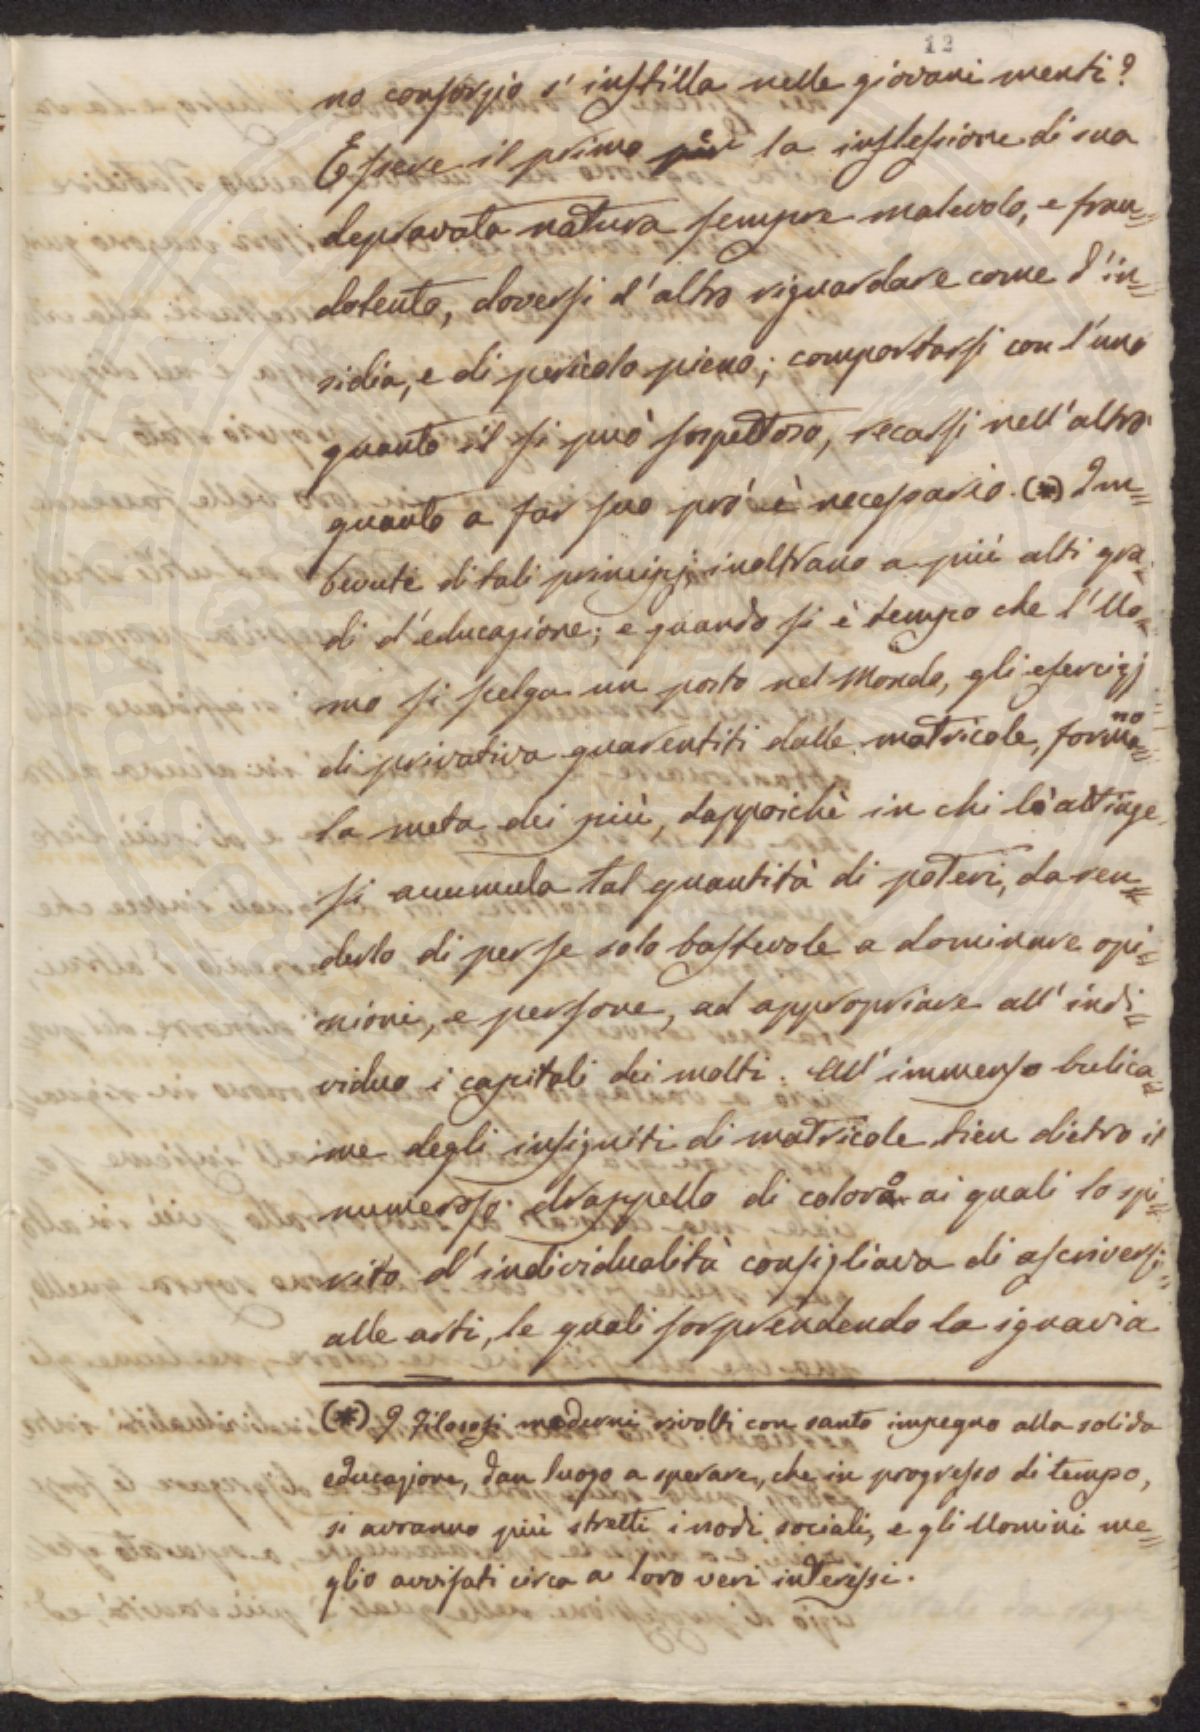 12
no consorzio s'instilla nelle giovani menti?
Essere il primo per la inflessione di sua
depravata natura sempre malevolo, e frau=
dolento, doversi l'altro riguardare come d'in=
sidia, e di pericolo pieno; comportarsi con l'uno
quanto il si può sospettoso, recarsi nell'altro
quanto a far suo prò è necessario. (*) Im=
bevute di tali principj inoltrano a più alti gra=
di d'educazione; e quando si è tempo che l'Uo=
mo si scelga un posto nel Mondo, gli esercizj
di privativa guarentiti dalle matricole, formano
la meta dei più, dappoichè in chi là attinge,
si accumula tal quantità di poteri, da ren=
derlo di per se solo bastevole a dominare opi=
nioni, e persone, ad appropriare all'indi=
viduo i capitali dei molti. All'immenso bulica=
me degli insigniti di matricole tien dietro il
numeroso drappello di coloro ai quali lo spi=
rito d'individualità consigliava di ascriversi
alle arti, le quali sorprendendo la ignavia
(*) I Filosofi moderni rivolti con santo impegno alla solida
educazione, dan luogo a sperare, che in progresso di tempo,
si avranno più stretti i nodi sociali, e gli Uomini me=
glio avvisati circa a' loro veri interessi.